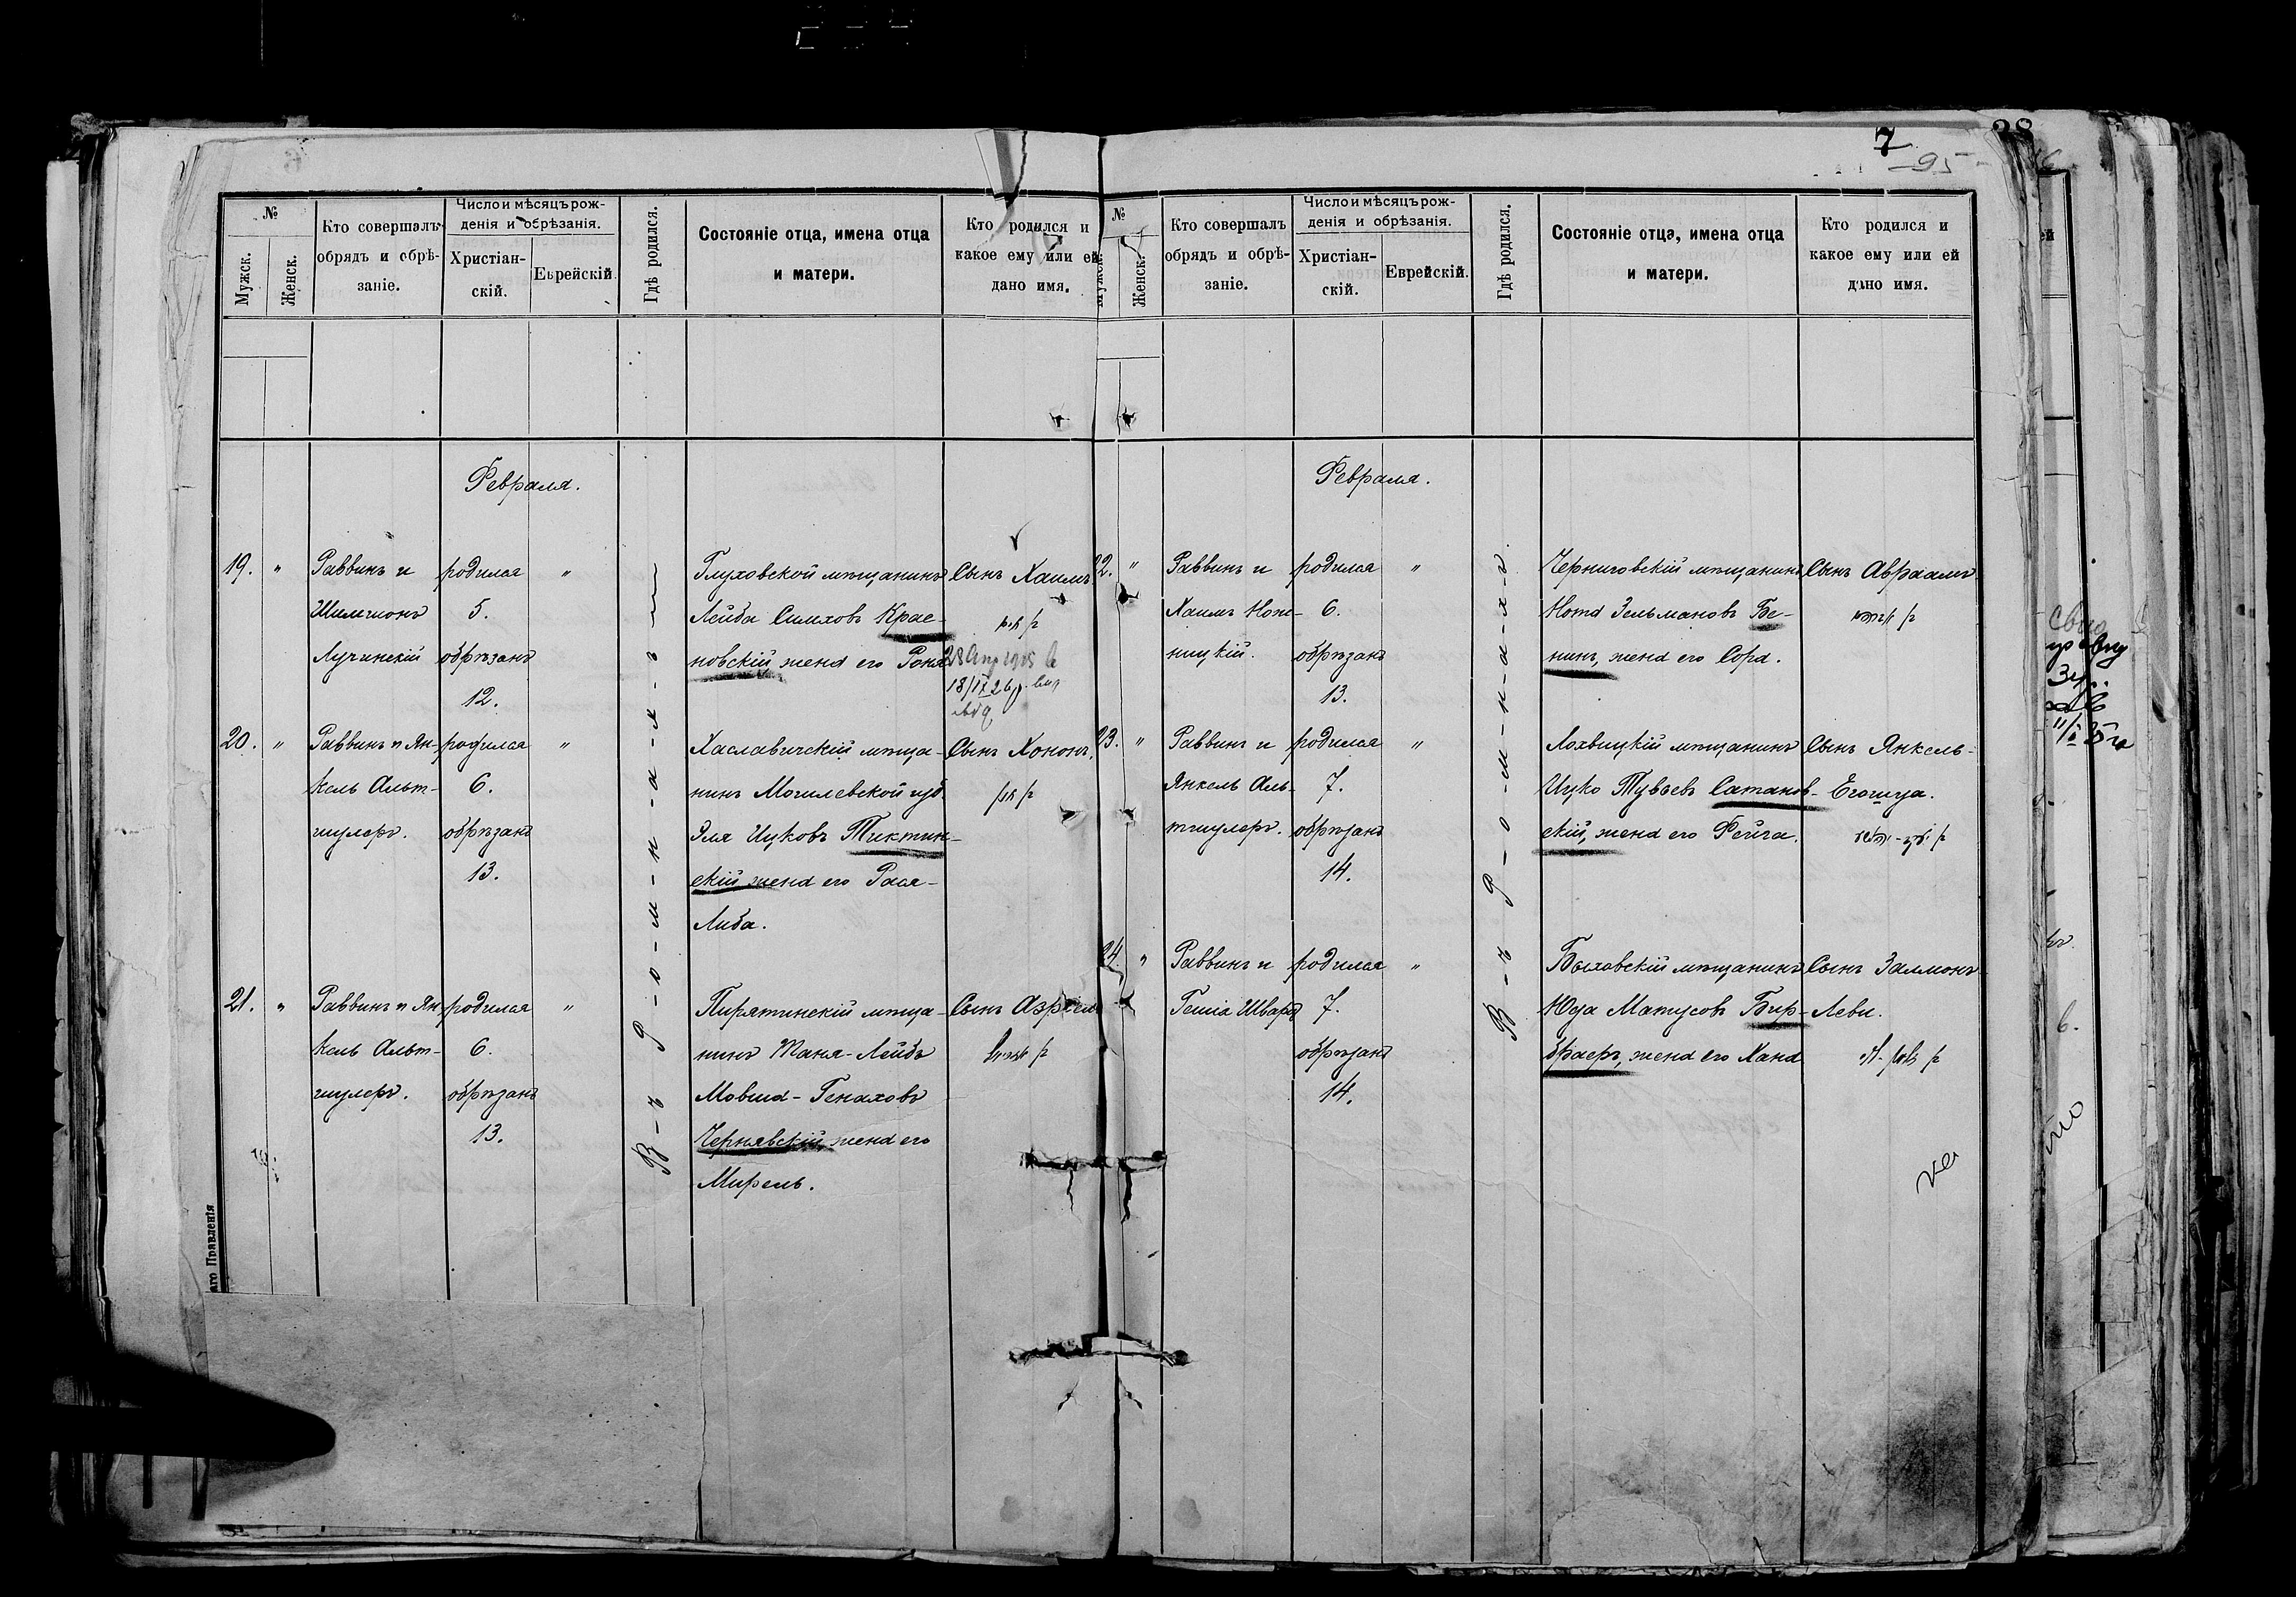 7
95
№
Мужск.
Женск.
Кто совершалъ
обрядъ и обрѣ-
заніе.
Число и мѣсяцъ рож-
денія и обрѣзанія.
Христіан-
скій.
Еврейскій.
Гдѣ родился.
Состояніе отца, имена отца
и матери.
Кто родился и
какое ему или ей
дано имя.
Февраля.
19.
"
Раввинъ и
Шимшонъ
Лучинскій
родился
5.
обрѣзанъ
12.
"
Глуховской мѣщанинъ
Лейба Симховъ Крас-
новскій, жена его Роня
Сынъ Хаимъ
20.
"
Раввинъ и Ян-
кель Альт-
шулеръ.
родился
6.
обрѣзанъ
13.
"
Хаславичскій мѣща-
нинъ Могилевской губ.
Эля Ицковъ Тиктин-
скій жена его Рася-
Либа.
Сынъ Хононъ.
21.
"
Раввинъ и Ян-
кель Альт-
шулеръ.
родился
6.
обрѣзанъ
13.
"
Пирятинскій мѣща-
нинъ Таня-Лейбъ
Мовша-Генаховъ
Чернявскій, жена его
Мирель.
Сынъ
В-ъ Р-о-м-н-а-х-ъ
аго Правленія
№
Женск.
Кто совершалъ
обрядъ и обрѣ-
заніе.
Число и мѣсяцъ рож-
денія и обрѣзанія.
Христіан-
скій.
Еврейскій.
Гдѣ родился.
Состояніе отца, имена отца
и матери.
Кто родился и
какое ему или ей
дано имя.
Февраля.
22.
"
Раввинъ и
Хаимъ Нож-
ницкій.
родился
6.
обрѣзанъ
13.
"
Черниговскій мѣщанинъ
Нота Зельмановъ Бе-
нинъ, жена его Сора.
Сынъ Авраамъ
23.
"
Раввинъ и
Янкель Аль-
тшулеръ.
родился
7.
обрѣзанъ
14.
"
Лохвицкій мѣщанинъ
Ицко Тувіевъ Сатанов-
скій, жена его Фейга.
Сынъ Янкель-
Егошуа.
24.
"
Раввинъ и
Гешіа Шварц
родился
7.
обрѣзанъ
14.
"
Быховскій мѣщанинъ
Юда Матусовъ Бир-
браеръ, жена его Хана
Сынъ Залмонъ
Леви.
В-ъ Р-о-м-н-а-х-ъ.